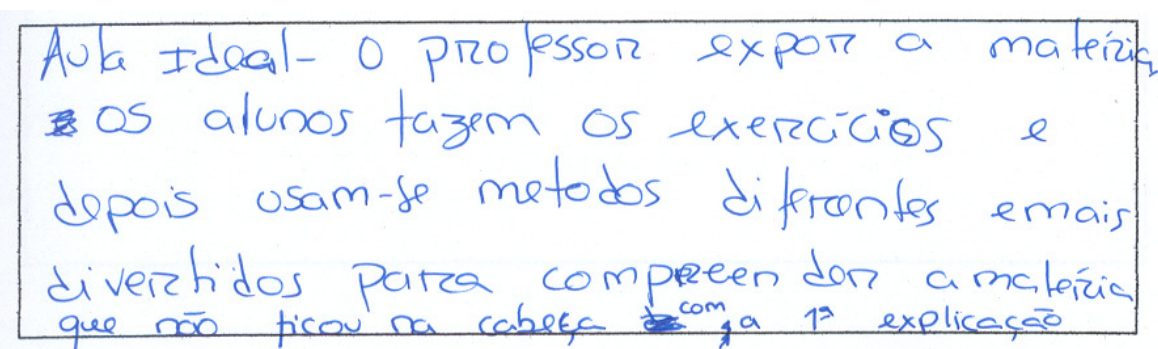 Aula Ideal - O professor expor a matéria
os alunos fazem os exercícios e
depois usam-se metodos diferentes e mais
divertidos para compreender a matéria
que não ficou na cabeça com a 1ª explicação